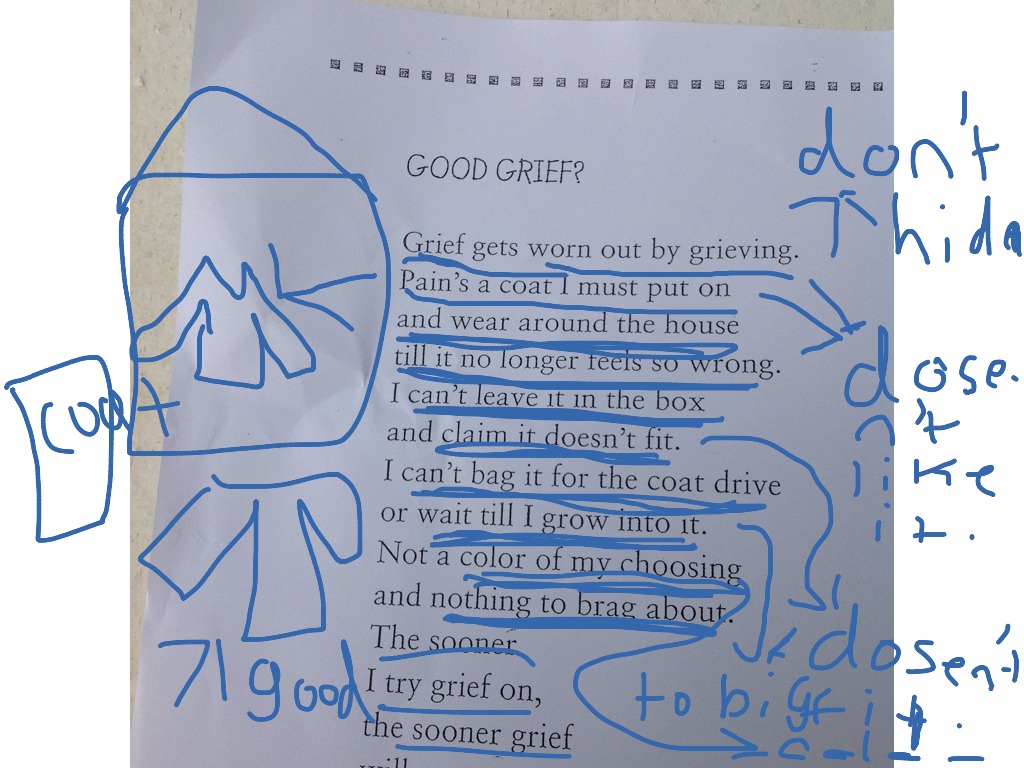 GOOD GRIEF?
Grief gets worn out by grieving.
Pain's a coat I must put on
and wear around the house
till it no longer feels so wrong.
I can't leave it in the box
and claim it doesn't fit.
I can't bag it for the coat drive
or wait till I grow into it.
Not a color of my choosing
and nothing to brag about.
The sooner
I try grief on,
the sooner grief
will
don't
hide
dose.
n't
like
it.
coat
good
dosen't
to big fit.